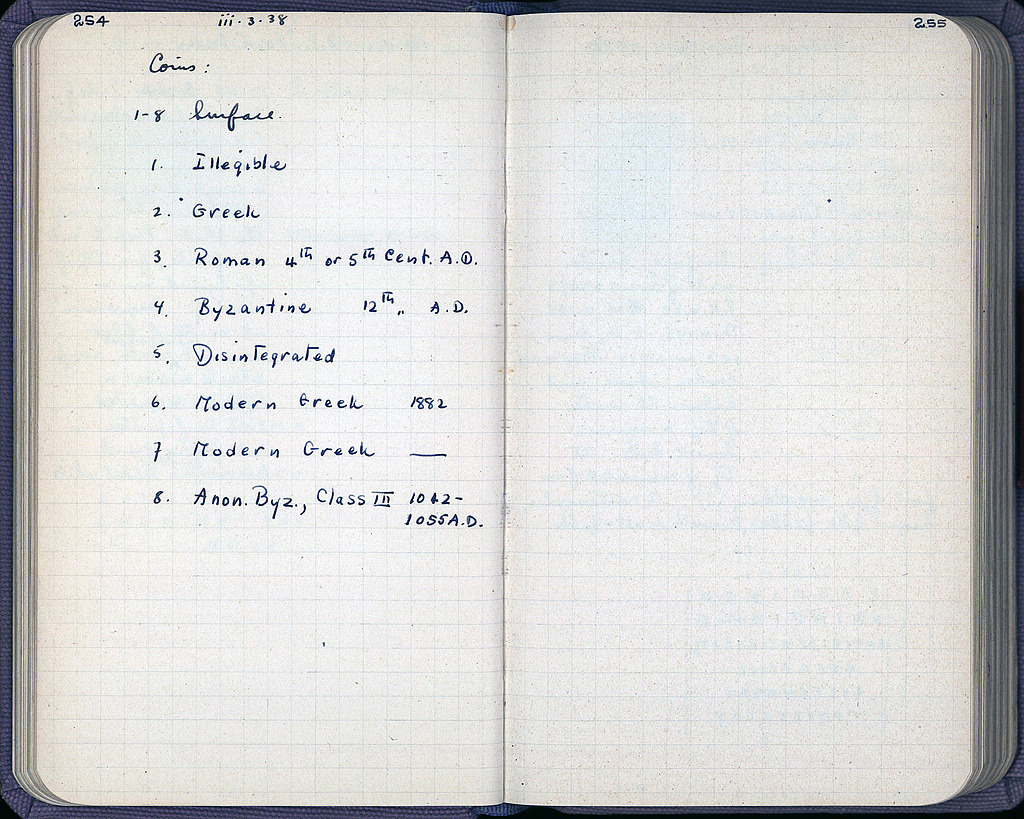 254 iii·3·38
Coins:
1-8 Surface.
1. Illegible
2. Greek
3. Roman 4th or 5th Cent. A.D.
4. Byzantine 12th „ A.D.
5. Disintegrated
6. Modern Greek 1882
7 Modern Greek —
8. Anon. Byz., Class III 1042-
1055 A.D.
255